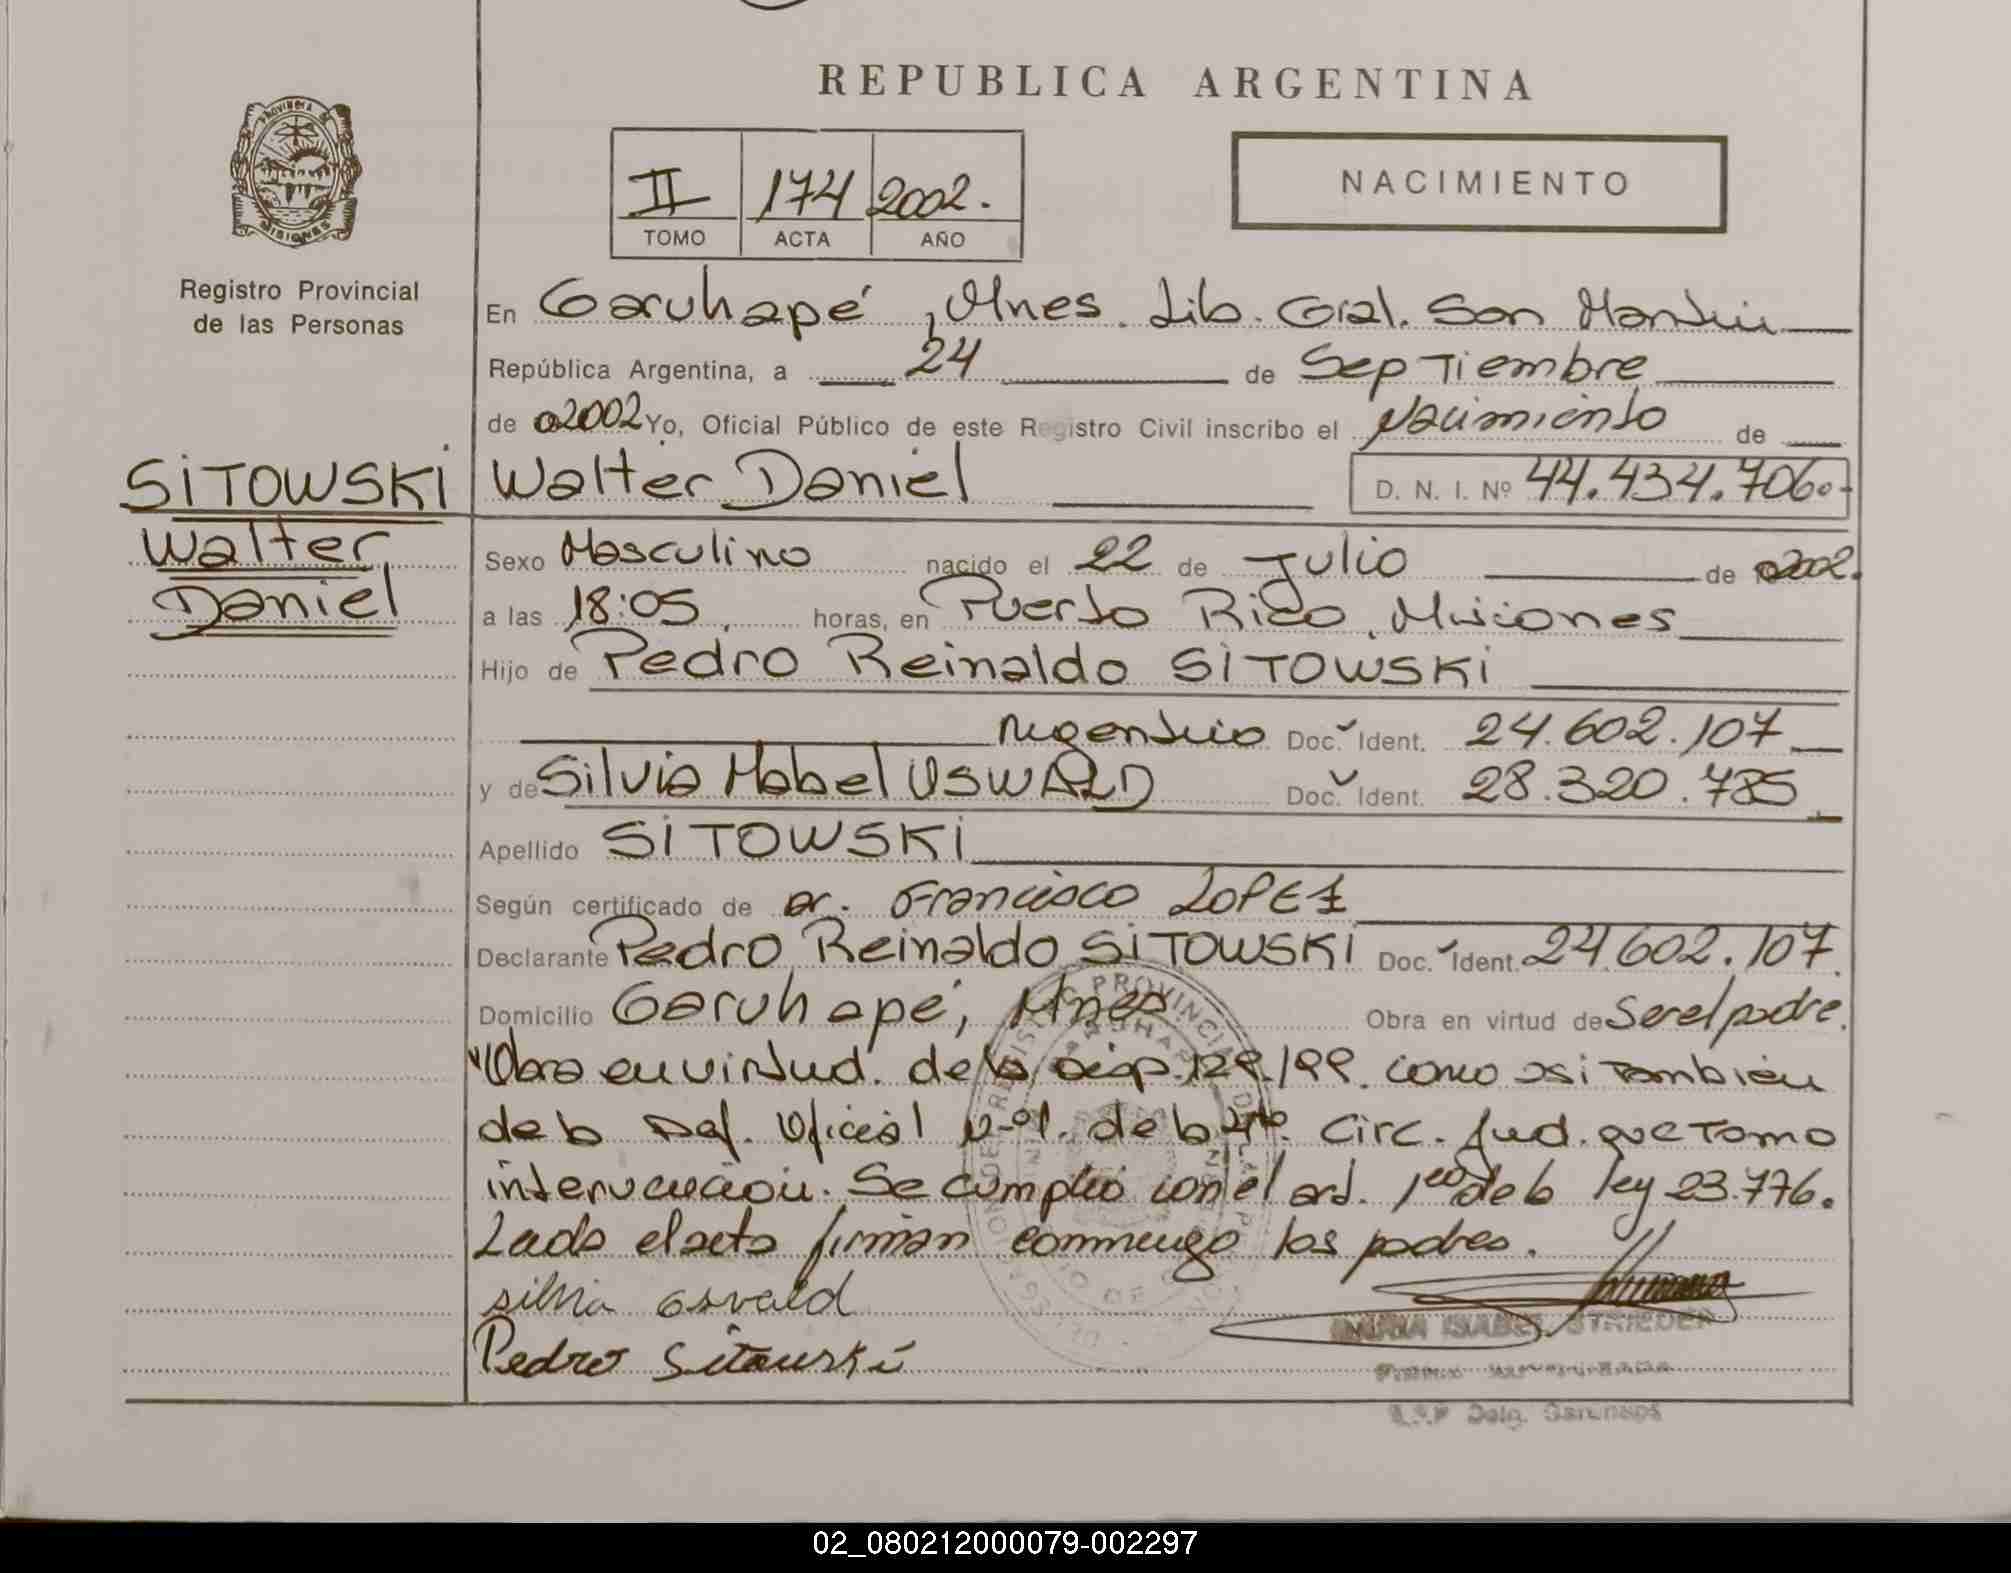 REPUBLICA ARGENTINA
PROVINCIA DE
MISIONES
Registro Provincial
de las Personas
II 174 2002.
TOMO ACTA AÑO
NACIMIENTO
En Garuhapé, Mnes. Lib. Gral. San Martin
República Argentina, a 24 de Septiembre
de 2002 Yo, Oficial Público de este Registro Civil inscribo el Nacimiento de
SITOWSKI
Walter
Daniel
Walter Daniel D. N. I. Nº 44.434.706.-
Sexo Masculino nacido el 22 de Julio de 2002.
a las 18:05, horas, en Puerto Rico, Misiones
Hijo de Pedro Reinaldo SITOWSKI
Argentino Doc. Ident. 24.602.107
y de Silvia Mabel OSWALD Doc. Ident. 28.320.785
Apellido SITOWSKI
Según certificado de Dr. Francisco LOPEZ
Declarante Pedro Reinaldo SITOWSKI Doc. Ident. 24.602.107
Domicilio Garuhapé, Mnes Obra en virtud de Ser el padre.
"Obra en virtud. de la Disp. 129/99. como asi tambien
de la Def. Oficial Nº 01. de la 4ta. Circ. Jud. que tomo
intervención. Se cumplió con el art. 1ro de la ley 23.776.
Leida el acta firman conmingo los padres.
silvia osvald
Pedro Sitouski
ISABEL STRIEDER
Delg. Garuhapé
02_080212000079-002297